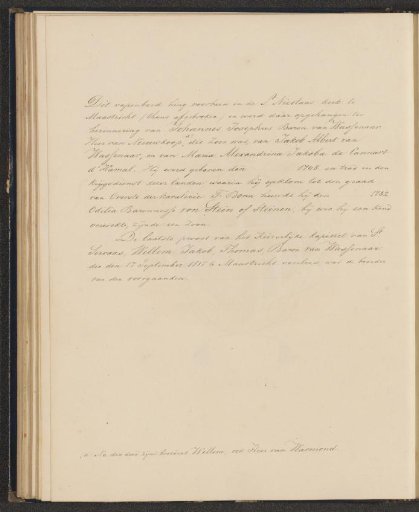 Dit wapenbord hing voorheen in de St Nicolaas kerk te
Maastricht (thans afgebroken) en werd daar opgehangen ter
herinnering van Johannes Josephus Baron van Wassenaar
Heer van Nieuwkoop, die zoon was van Jakob Albert van
Wassenaar, en van Maria Alexandrina Jakoba de Cannart
d'Hamal. Hij werd geboren den 1708 en trad in den
krijgsdienst van den lande waarin hij opklom tot den graad
van Overste der Cavalerie. 1782
Odilia Baronnesse von Stein of Steinen, bij wie hij een kind
verwekte, zijnde een zoon.
De laatste proost van het Keizerlijke kapittel van St
Servaas, Willem Jakob Thomas, Baron van Wassenaar
die den 17 September 1817 te Maastricht overleed was de broeder
van den voorgaanden.
Na den dood zijns broeders Willem, ook Heer van Warmond.